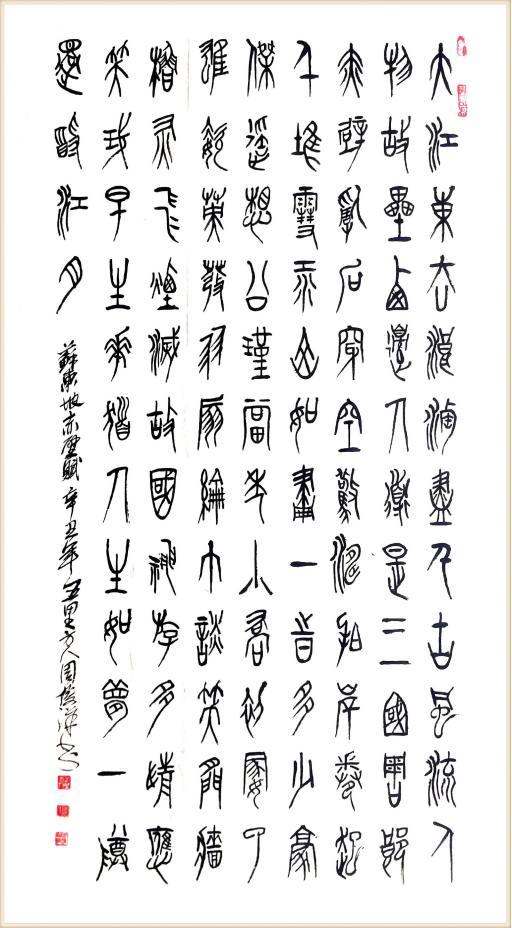 大江東去浪淘盡千古風流人
物故壘西邊人道是三國周郎
赤壁亂石穿空驚濤拍岸卷起
千堆雪江山如畫一時多少豪
傑遙想公瑾當年小喬初嫁了
雄姿英發羽扇綸巾談笑間檣
櫓灰飛煙滅故國神遊多情應
笑我早生華髮人生如夢一尊
還酹江月
蘇東坡赤壁賦 辛丑年 五里方人周